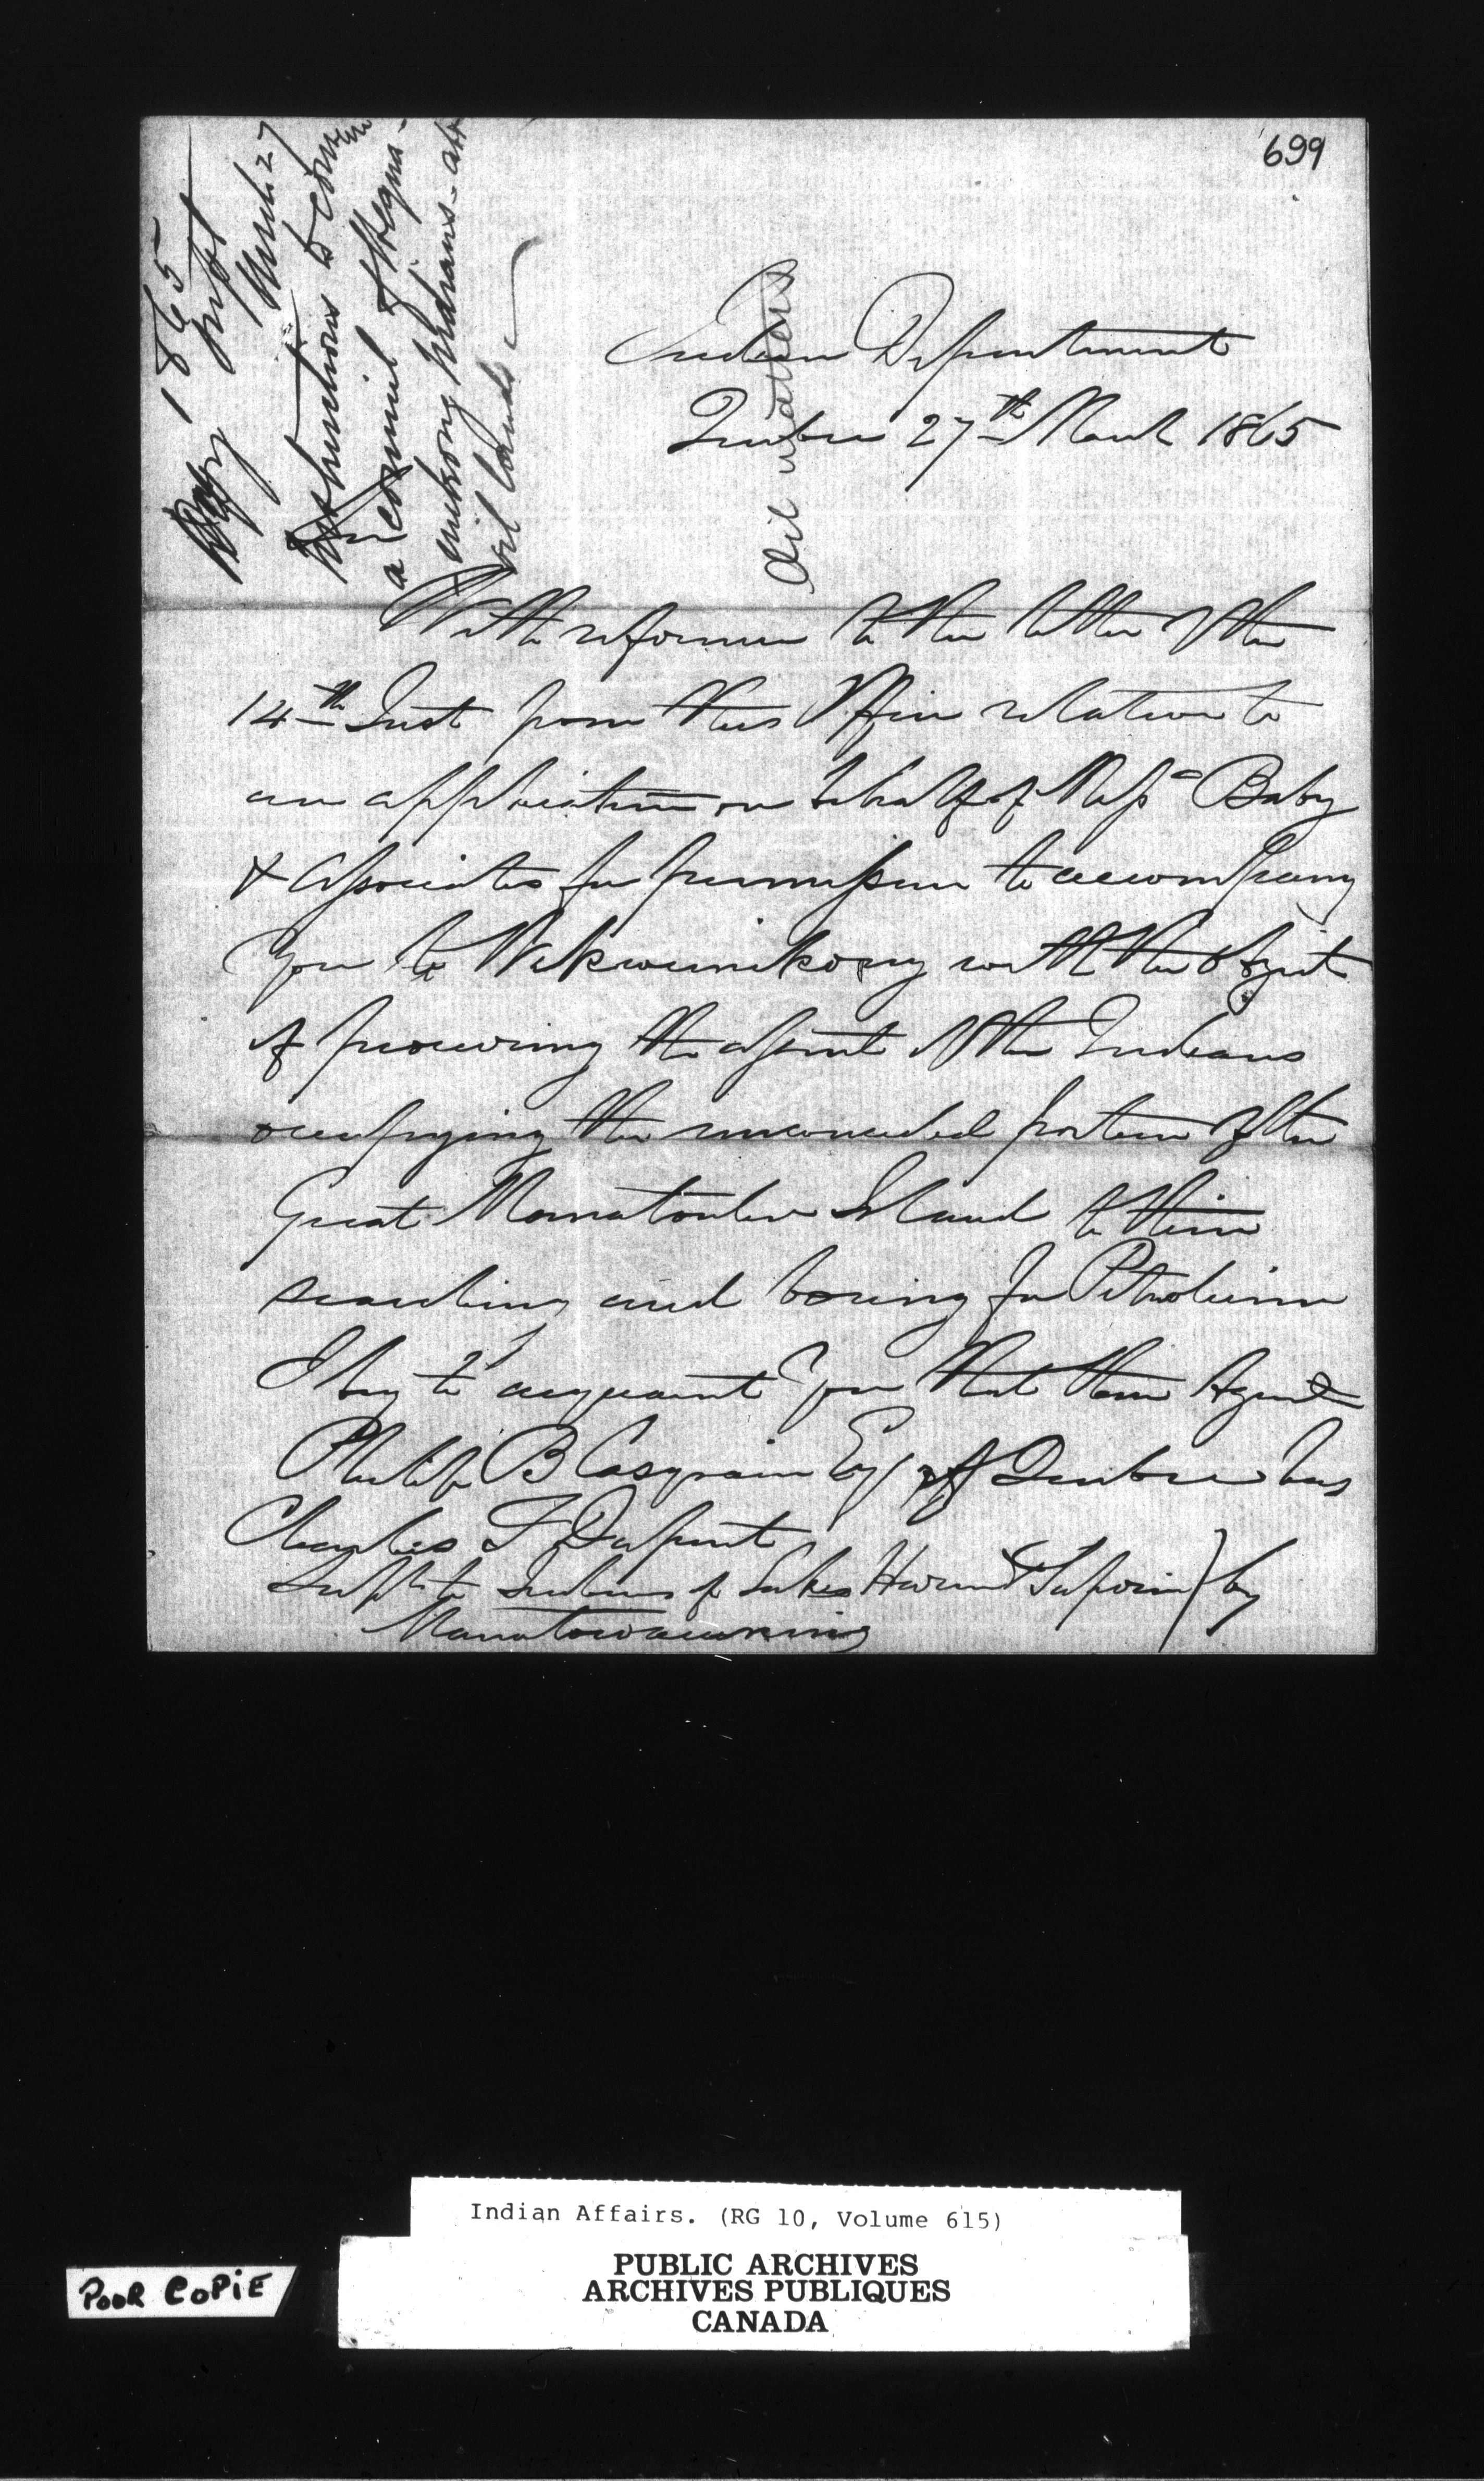 699
1865
March 27
Instructions to convene
a council of Wequa-
mikong Indians - abt
oil lands
Oil matters
Indian Department
Quebec 27th March 1865
With reference to the letter of the
14th Inst from this Office relative to
an application on behalf of Messrs Baby
& Associates for permission to accompany
you to Wekwemikong with the object
of procuring the assent of the Indians
occupying the unconceded portion of the
Great Manatoulin Island to their
searching and boring for Petroleum
I beg to acquaint you that their Agent
Philip B Casgrain Esq of Quebec has
Charles T Dupont
Supt to Indians of Lakes Huron & Superior) by
Manatowauning
Indian Affairs. (RG 10, Volume 615)
PUBLIC ARCHIVES
ARCHIVES PUBLIQUES
CANADA
POOR COPiE